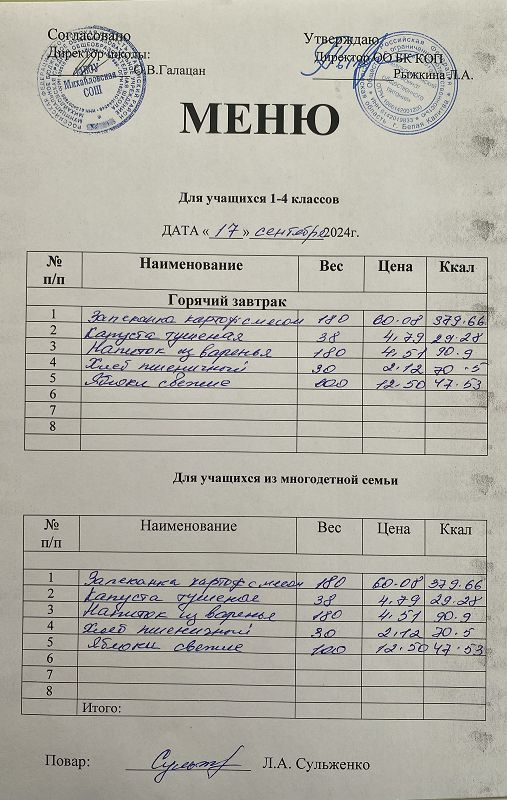 Согласовано Утверждаю
Директор школы: Директор ОО БК КОП
О.В.Галацан Рыжкина Л.А.
Михайловская
СОШ
МЕНЮ
Для учащихся 1-4 классов
ДАТА «17» сентября 2024г.
№ п/п Наименование Вес Цена Ккал
Горячий завтрак
1 Запеканка картоф. с мясом 180 60.08 379.66
2 Капуста тушеная 38 4.79 29.28
3 Напиток из варенья 180 4.51 90.9
4 Хлеб пшеничный 30 2.12 70.5
5 Яблоки свежие 100 12.50 47.53
6
7
8
Для учащихся из многодетной семьи
№ п/п Наименование Вес Цена Ккал
1 Запеканка картоф. с мясом 180 60.08 379.66
2 Капуста тушеная 38 4.79 29.28
3 Напиток из варенья 180 4.51 90.9
4 Хлеб пшеничный 30 2.12 70.5
5 Яблоки свежие 100 12.50 47.53
6
7
8
Итого:
Повар: Л.А. Сульженко